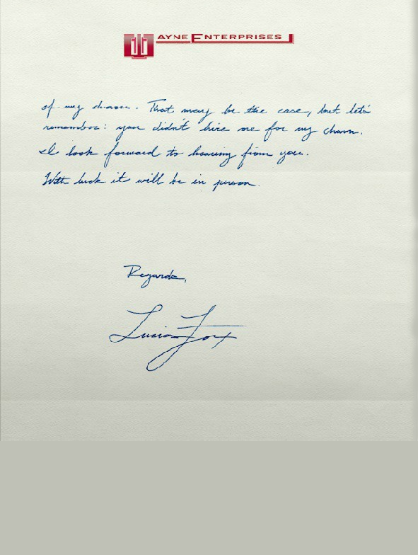 WAYNE ENTERPRISES
of my charm. That may be the case, but let's
remember: you didn't hire me for my charm.
I look forward to hearing from you.
With luck it will be in person.
Regards,
Lucius Fox